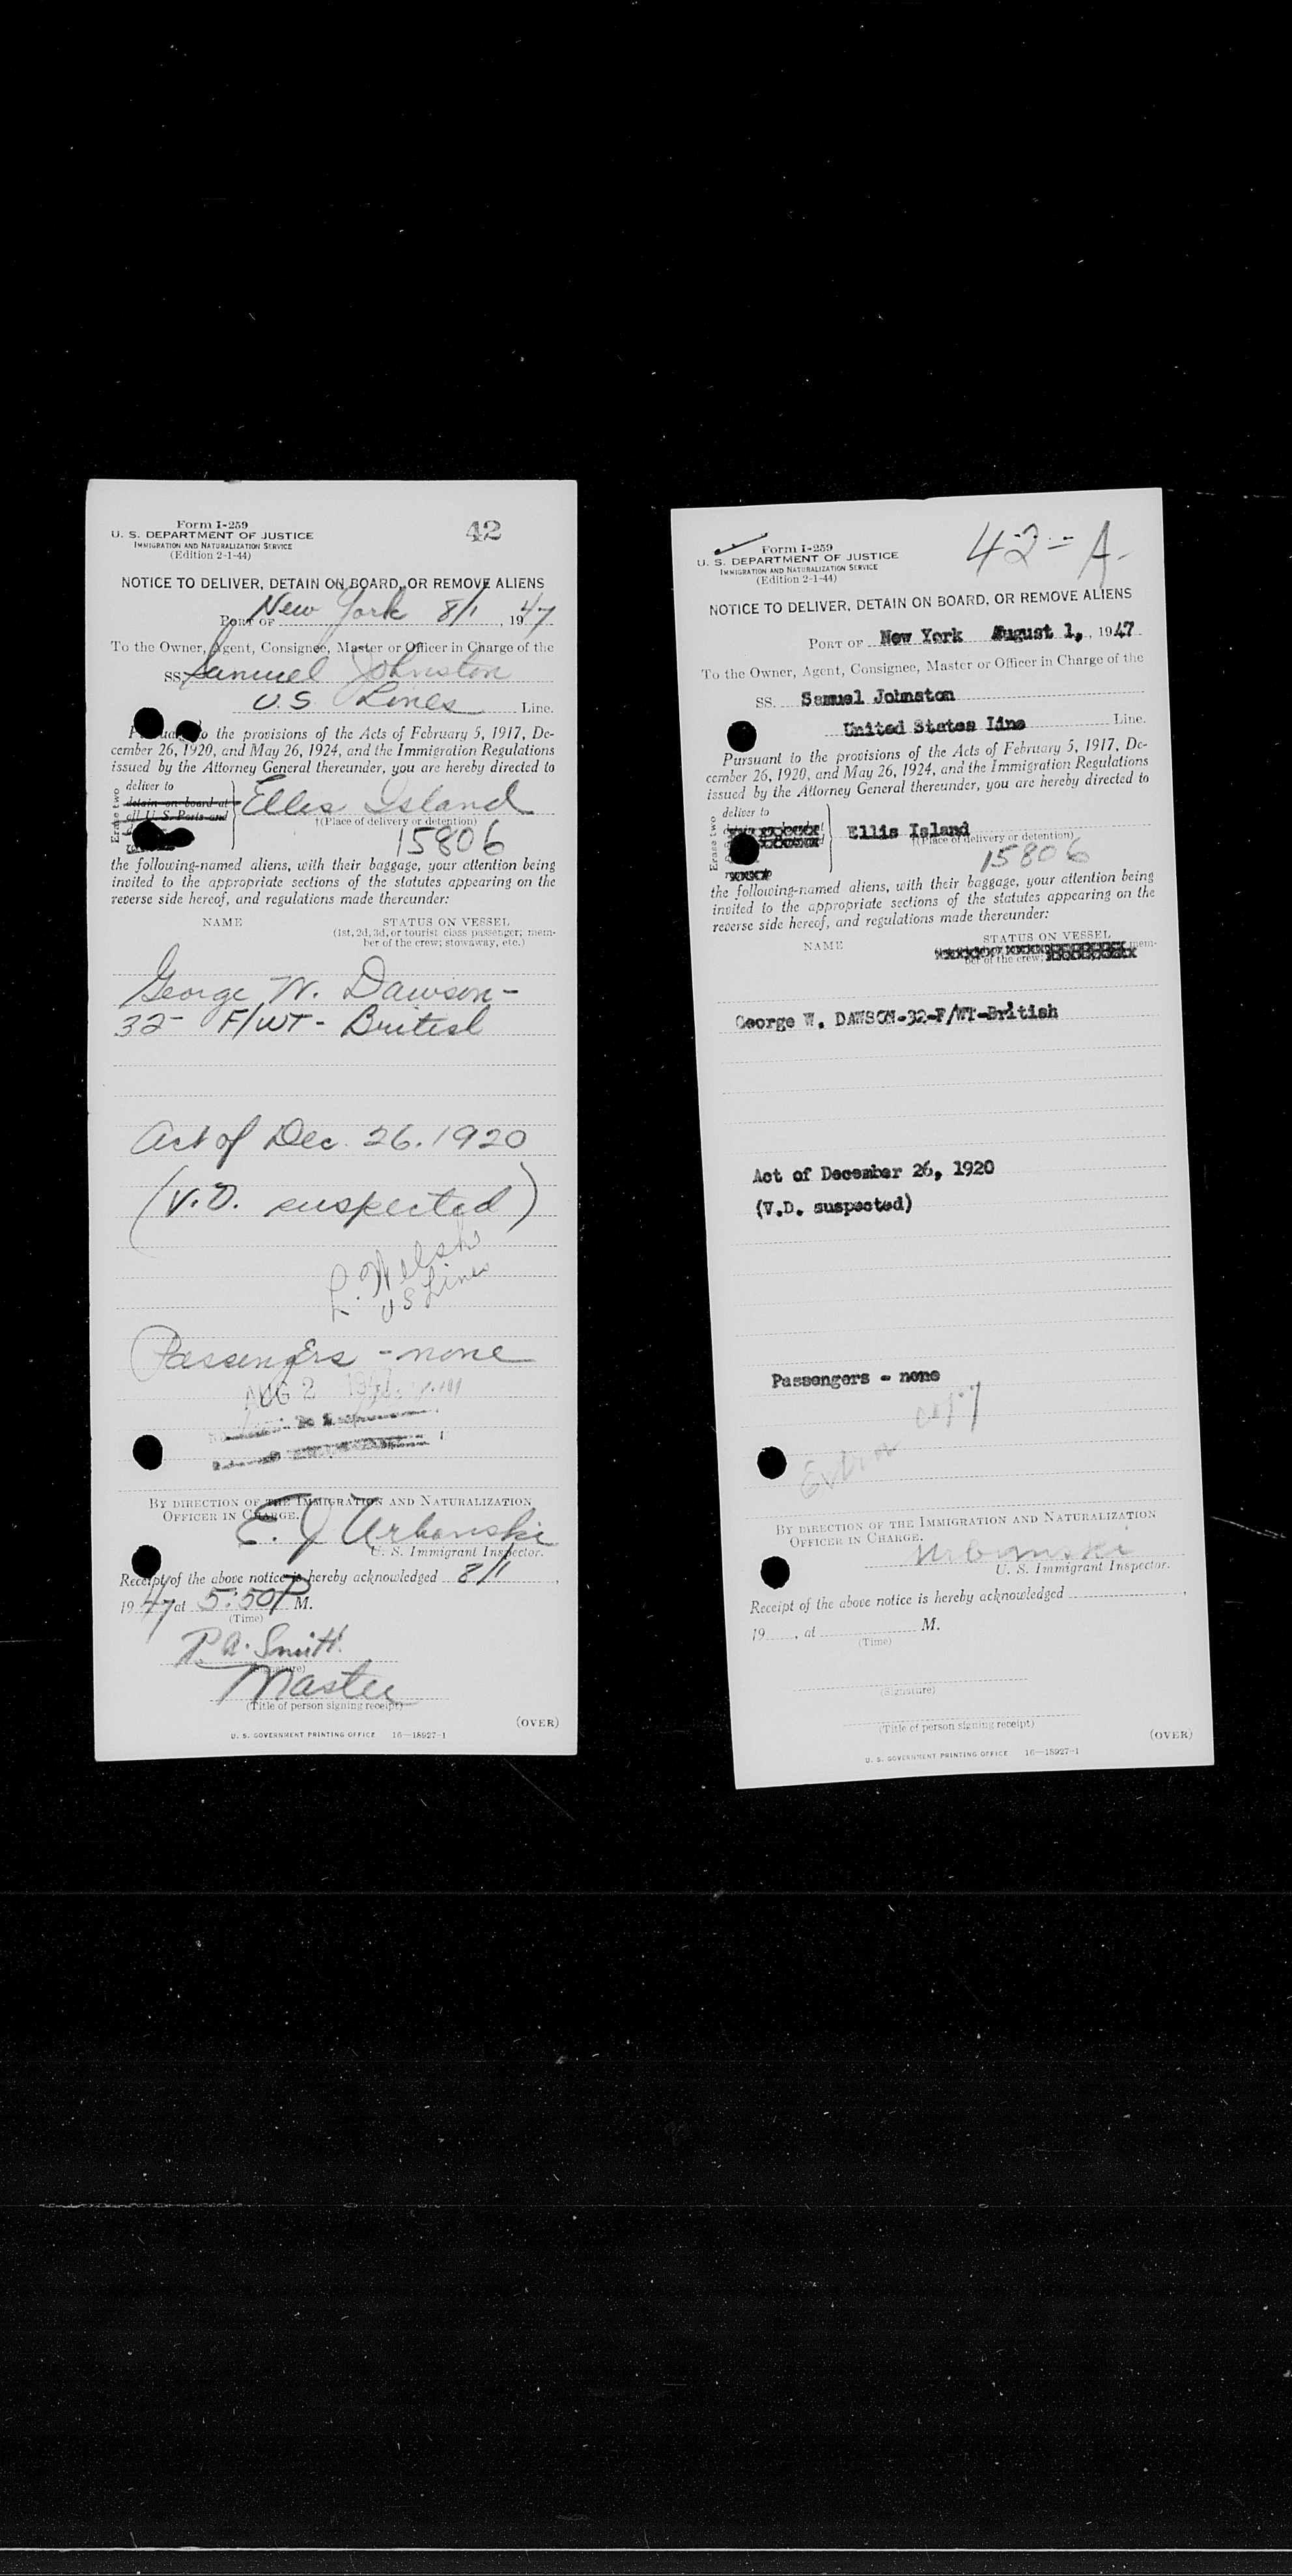 Form I-259
U. S. DEPARTMENT OF JUSTICE
IMMIGRATION AND NATURALIZATION SERVICE
(Edition 2-1-44)
42
NOTICE TO DELIVER, DETAIN ON BOARD, OR REMOVE ALIENS
PORT OF New York 8/1, 1947
To the Owner, Agent, Consignee, Master or Officer in Charge of the
SS Samuel Johnston
U.S. Lines Line.
to the provisions of the Acts of February 5, 1917, De-
cember 26, 1920, and May 26, 1924, and the Immigration Regulations
issued by the Attorney General thereunder, you are hereby directed to
Erase two
deliver to
detain on board at
all U. S. Ports and
Ellis Island
†(Place of delivery or detention)
15806
the following-named aliens, with their baggage, your attention being
invited to the appropriate sections of the statutes appearing on the
reverse side hereof, and regulations made thereunder:
NAME STATUS ON VESSEL
(1st, 2d, 3d, or tourist class passenger; mem-
ber of the crew; stowaway, etc.)
George W. Dawson-
32- F/WT- British
Act of Dec. 26. 1920
(V.D. suspected)
L. Welsh
US Lines
Passengers - none
AUG 2
BY DIRECTION OF THE IMMIGRATION AND NATURALIZATION
OFFICER IN CHARGE.
E. J Urbanski
U. S. Immigrant Inspector.
Receipt of the above notice is hereby acknowledged 8/1,
1947 at 5:50 P M.
(Time)
P.A. Smith
(Signature)
Master
(Title of person signing receipt)
(OVER)
U. S. GOVERNMENT PRINTING OFFICE 16—18927-1
Form I-259
U. S. DEPARTMENT OF JUSTICE
IMMIGRATION AND NATURALIZATION SERVICE
(Edition 2-1-44)
42-A-
NOTICE TO DELIVER, DETAIN ON BOARD, OR REMOVE ALIENS
PORT OF New York August 1, , 1947
To the Owner, Agent, Consignee, Master or Officer in Charge of the
SS. Samuel Johnston
United States Line Line.
Pursuant to the provisions of the Acts of February 5, 1917, De-
cember 26, 1920, and May 26, 1924, and the Immigration Regulations
issued by the Attorney General thereunder, you are hereby directed to
Erase two
deliver to
Ellis Island
†(Place of delivery or detention)
15806
the following-named aliens, with their baggage, your attention being
invited to the appropriate sections of the statutes appearing on the
reverse side hereof, and regulations made thereunder:
NAME STATUS ON VESSEL
mem-
ber of the crew;
George W. DAWSON-32-F/WT-British
Act of December 26, 1920
(V.D. suspected)
Passengers - none
Extra copy
BY DIRECTION OF THE IMMIGRATION AND NATURALIZATION
OFFICER IN CHARGE.
Urbanski
U. S. Immigrant Inspector.
Receipt of the above notice is hereby acknowledged ,
19 , at M.
(Time)
(Signature)
(Title of person signing receipt)
(OVER)
U. S. GOVERNMENT PRINTING OFFICE 16—18927-1